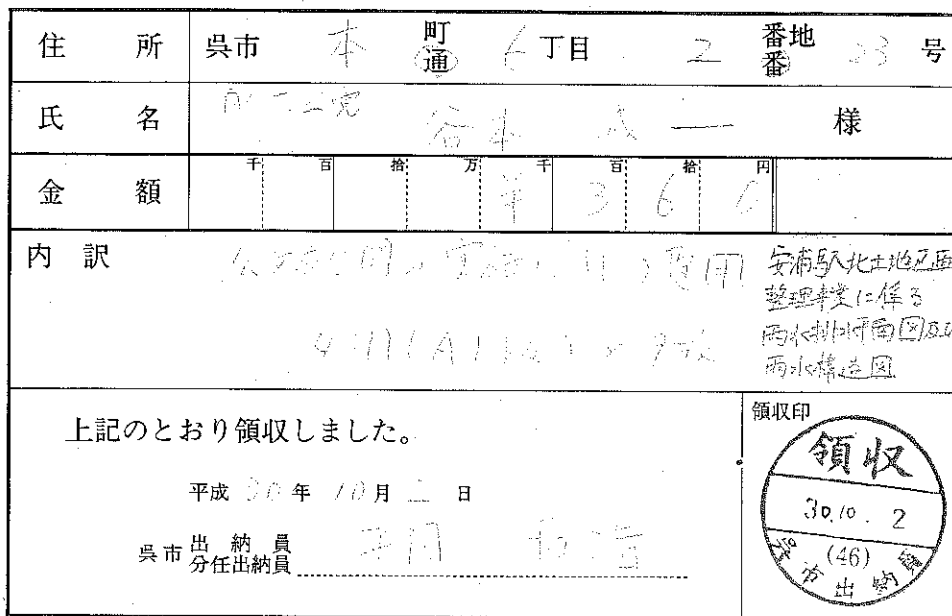 住所 呉市 本 町 通 6 丁目 2 番地 番 23 号
氏名 谷本 誠一 様
金額 千 百 拾 万 千 百 拾 円
¥ 3 6 0
内訳
安浦駅北土地区画
整理事業に係る
雨水排水平面図及び
雨水構造図
上記のとおり領収しました。
平成 30 年 10 月 2 日
呉市 出納員 分任出納員
領収印
領収
30.10.2
(46)
呉市出納員